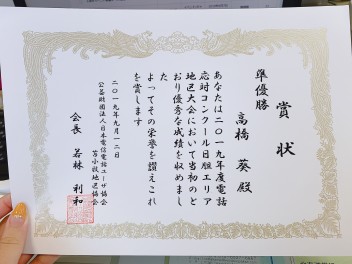 賞状
準優勝
高橋 葵 殿
あなたは二〇一九年度電話
応対コンクール日胆エリア
地区大会において当初のと
おり優秀な成績を収めまし
た
よってその栄誉を讃えこれ
を賞します
二〇一九年九月一二日
公益財団法人日本電信電話ユーザ協会
苫小牧地区協会
会長 若林 利和